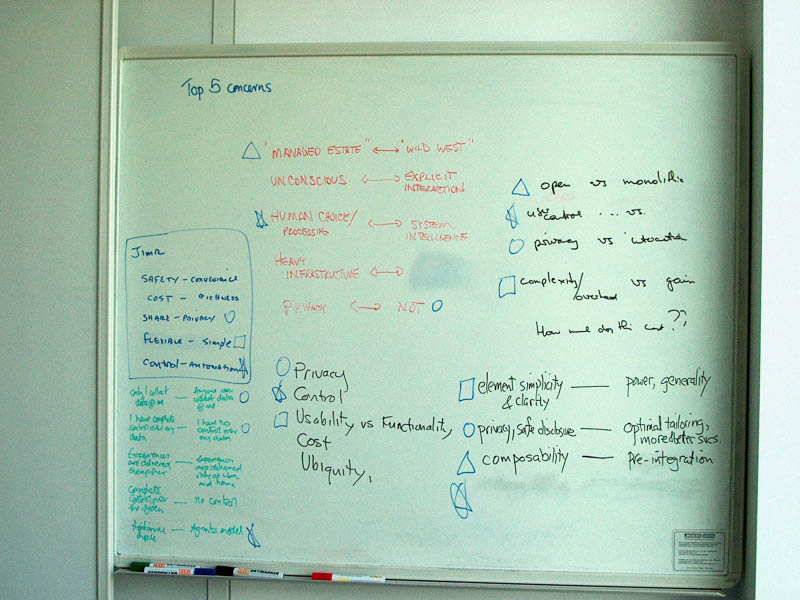 Top 5 concerns
"MANAGED ESTATE" ↔ "WILD WEST"
UNCONSCIOUS ↔ EXPLICIT INTERACTION
HUMAN CHOICE/ PROCESSING ↔ SYSTEM INTELLIGENCE
HEAVY INFRASTRUCTURE ↔
PRIVACY ↔ NOT
open vs monolithic
user control ... vs.
privacy vs
complexity/ overhead vs gain
How much does this cost??
JIMR
SAFETY - CONVENIENCE
COST - RICHNESS
SHARE - PRIVACY
FLEXIBLE - Simple
CONTROL - AUTOMATION
Privacy
Control
Usability vs Functionality
Cost
Ubiquity,
element simplicity & clarity — power, generality
privacy, safe disclosure — optimal tailoring,
more better svcs.
composability — pre-integration
only I collect data @ me — Anyone can collect data @ me
I have complete control over my data — I have no control over my data
Experiences are delivered everywhere — Experiences are delivered only at work and home
Complete control over the system — No control
Appliance model — Agents model